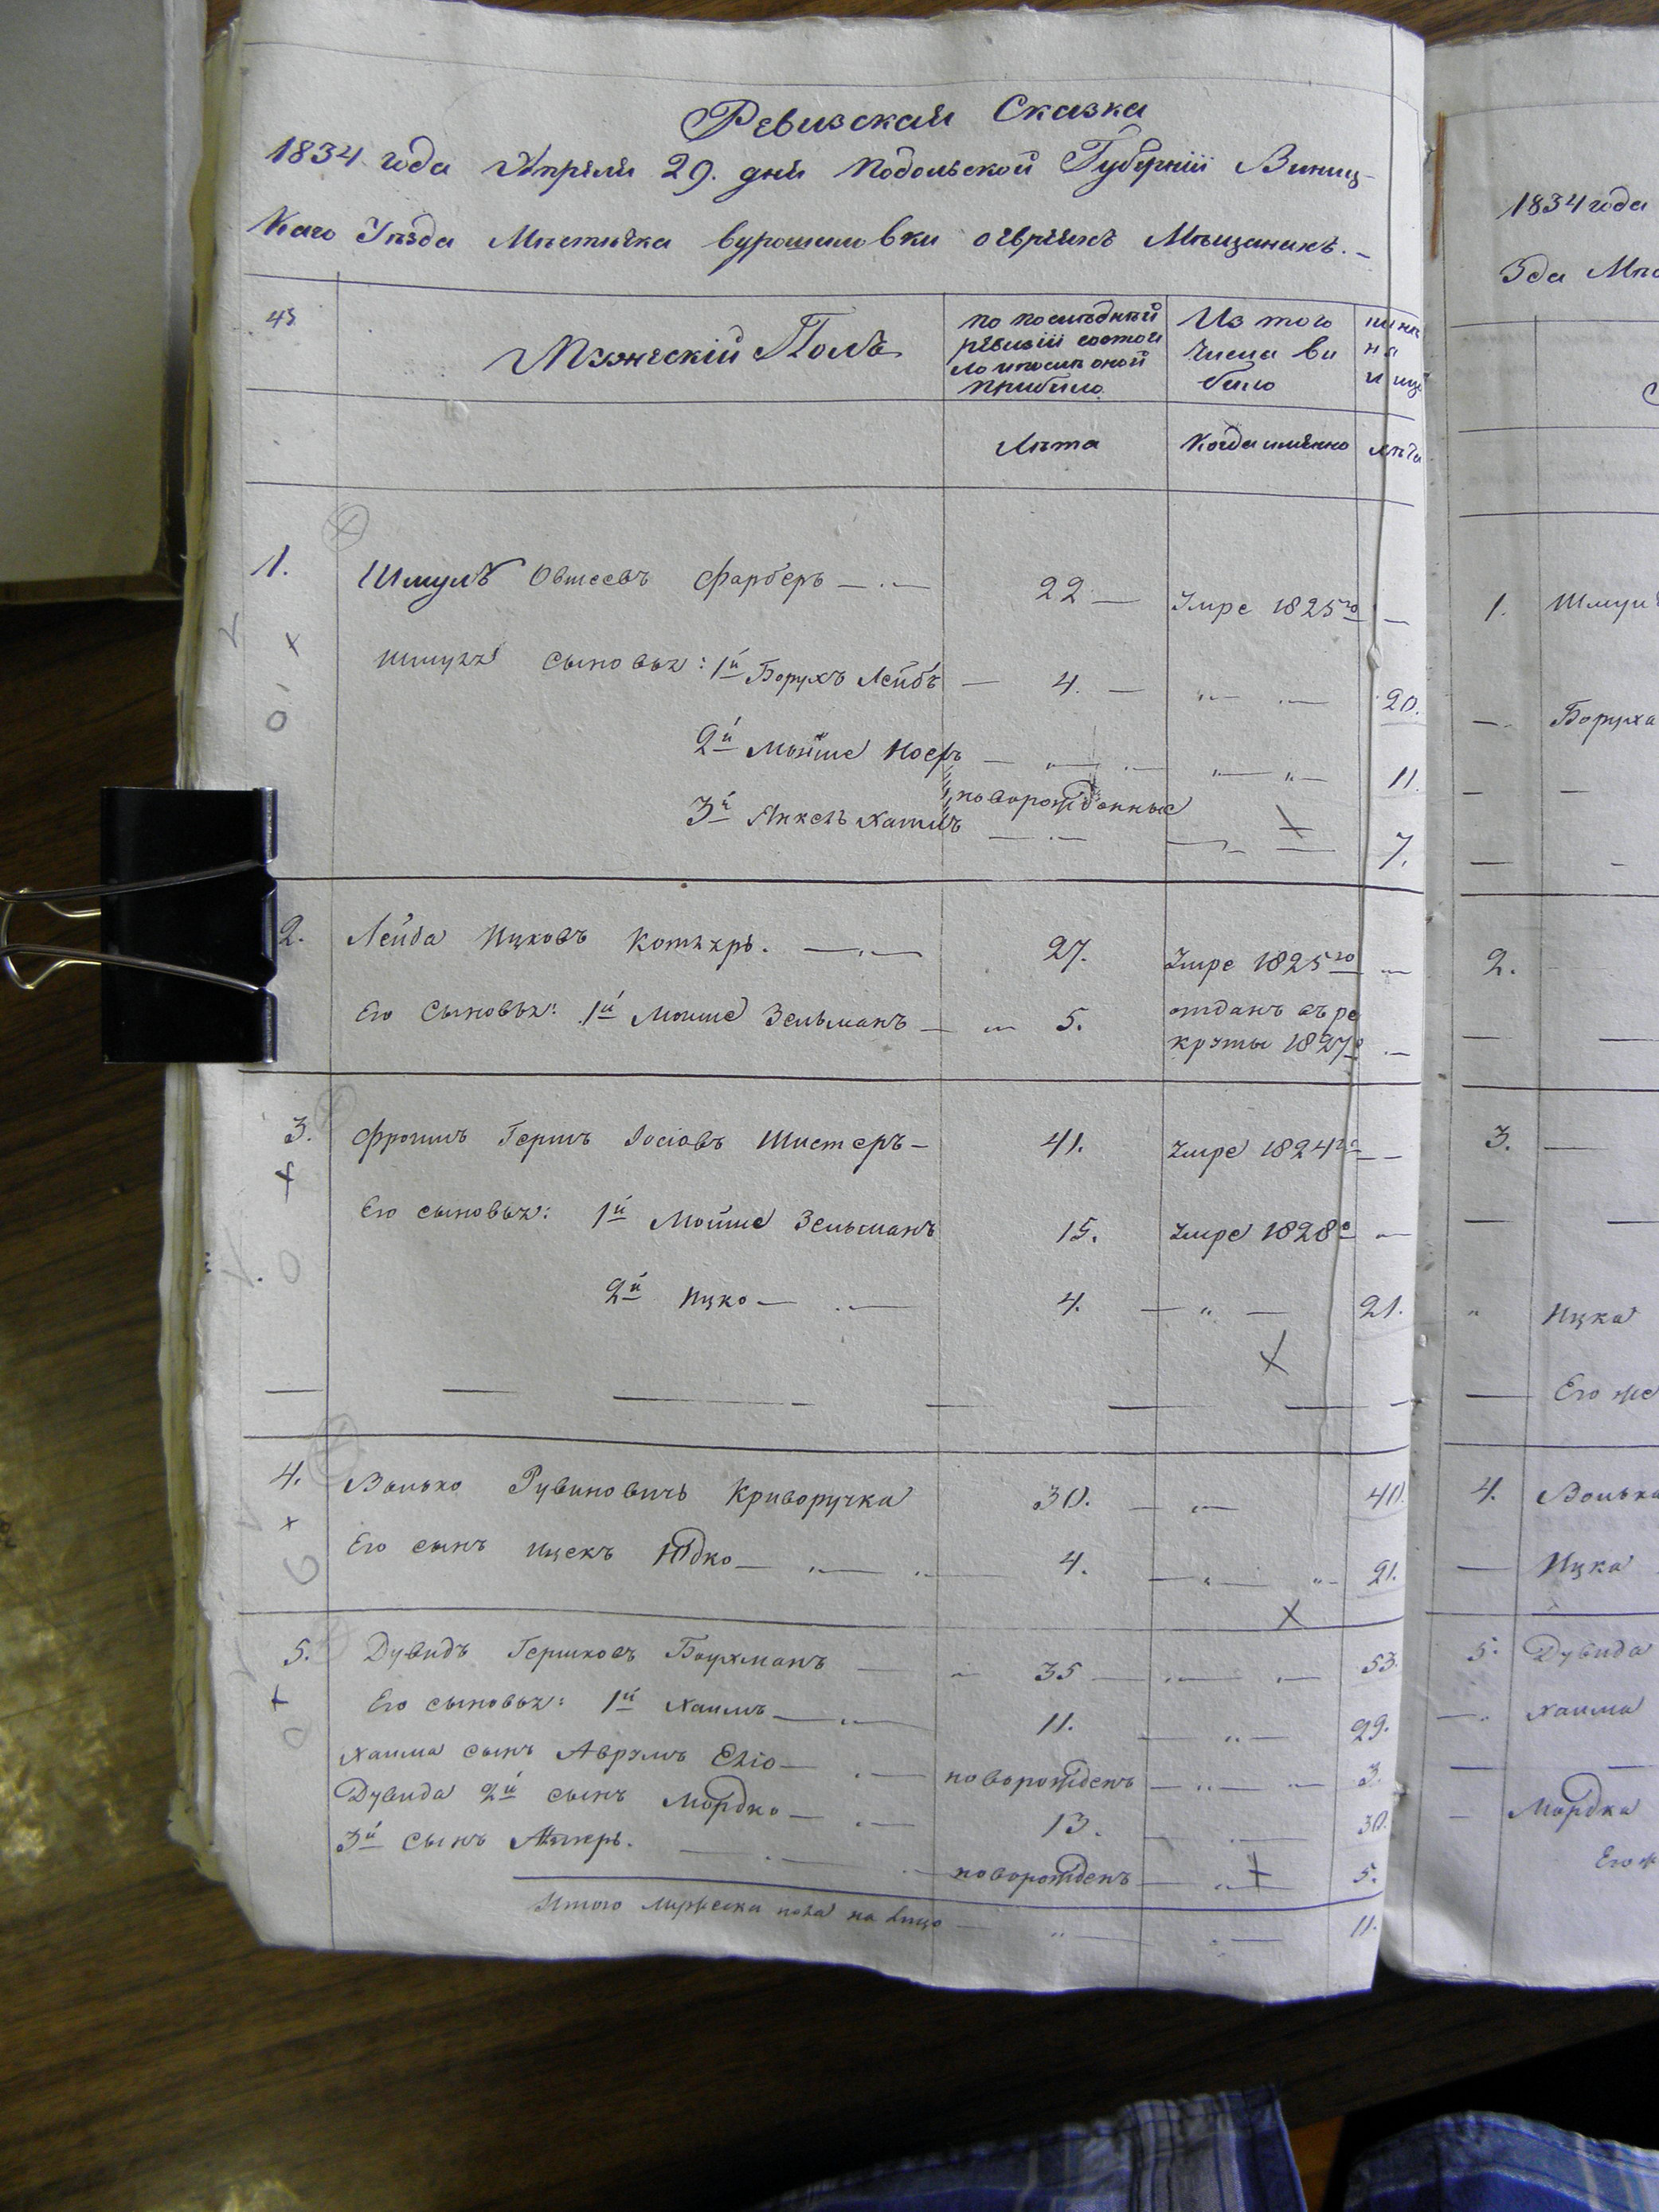 Ревизская Сказка
1834 года Апреля 29. дня Подольской Губернiи Винниц-
каго Уѣзда Мѣстечка Вурошиловки о Евреяхъ Мѣщанахъ. –
43
Мужескiй Полъ
По последней ревизiи состояло и после оной прибыло.
Из того числа выбыло
ныне на лицо
Лѣта
Когда именно
лѣта
1. Шмуль Овшеевъ Фарберъ — 22 — Умре 1825го —
Шмуля сыновья: 1й Борухъ Лейбъ — 4. — 20.
2й Мойше Иосфъ — 11.
новорожденные
3й Янкель Хаимъ — 7.
2. Лейба Ицковъ Котляръ. — 27. Умре 1825го —
Его Сыновья: 1й Мошше Зельманъ — 5. отданъ въ ре
круты 1827г —
3. Фроимъ Гершъ Iосiовъ Шистеръ — 41. Умре 1824го —
Его сыновья: 1й Мойше Зельманъ 15. Умре 1828г —
2й Ицко — 4. — 21.
4. Волько Рувиновичъ Криворучка 30. — 40.
Его сынъ Ицекъ Юдко — 4. — 21.
5. Дувидъ Гершковъ Боухманъ — 35 — 53.
Его сыновья: 1й Хаимъ — 11. — 29.
Хаима сынъ Аврумъ Элiо — новорожденъ — 3.
Дувида 2й сынъ Мордко — 13. — 30.
3й сынъ Меиеръ. — новорожденъ — 5.
Итого мужеска пола на лицо — 11.
1834 года
зда Мѣс
1. Шмуля
— Боруха
2.
3. —
Ицка
— Его же
4. Волька
— Ицка
5. Дувида
— Хаима
— Мордка
Его ж